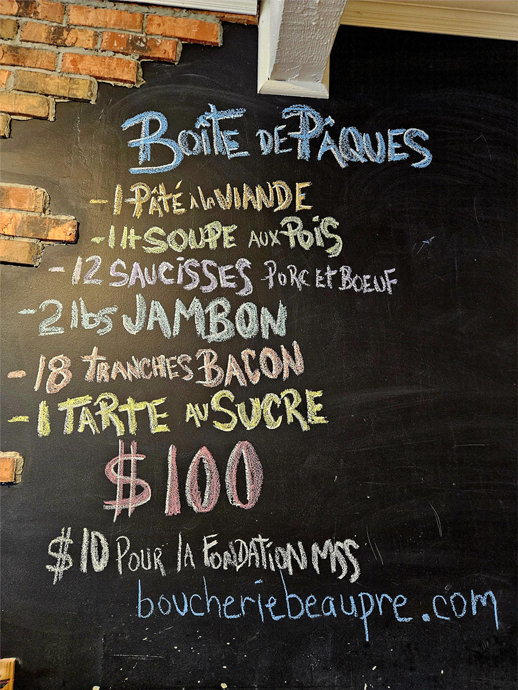 BOÎTE DE PÂQUES
- 1 PÂTÉ À la VIANDE
- 1 lt SOUPE AUX POIS
- 12 SAUCISSES PORC ET BOEUF
- 2 lbs JAMBON
- 18 TRANCHES BACON
- 1 TARTE AU SUCRE
$100
$10 POUR la FONDATION MSS
boucheriebeaupre.com